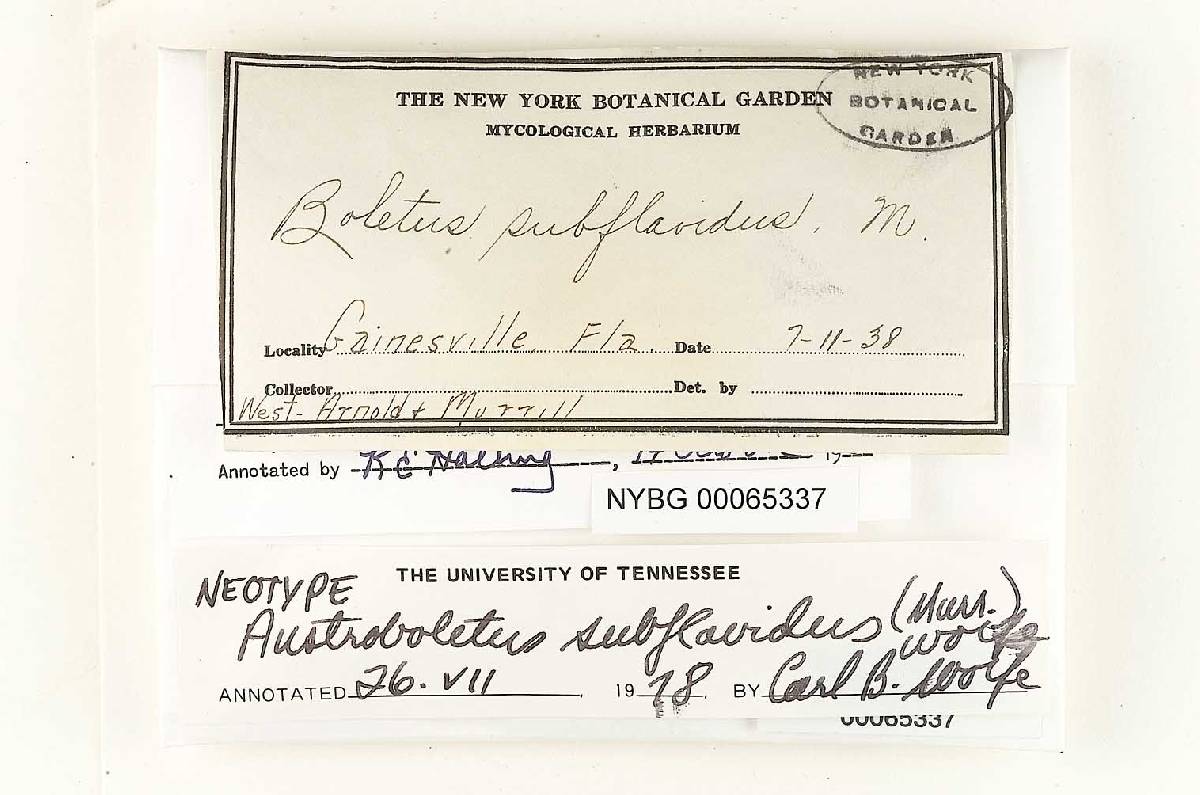 THE NEW YORK BOTANICAL GARDEN
MYCOLOGICAL HERBARIUM
NEW YORK
BOTANICAL
GARDEN
Boletus subflavidus, M.
Locality Gainesville Fla. Date 7-11-38
Collector Det. by
West- Arnold & Murrill
Annotated by K E Halling, 19
NYBG 00065337
NEOTYPE THE UNIVERSITY OF TENNESSEE
Austroboletus subflavidus (Murr.)
Wolfe
ANNOTATED 26. VII 1978. BY Carl B. Wolfe
00065337